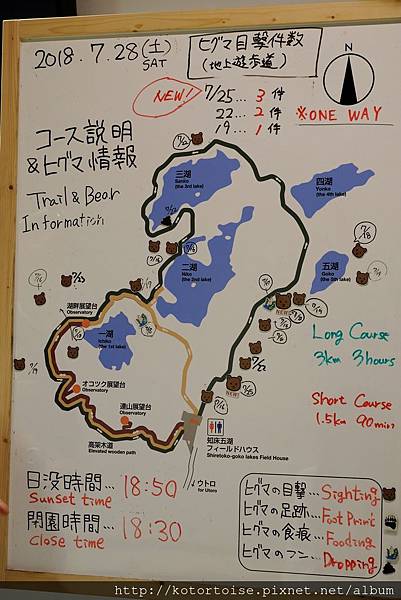 2018.7.28(土)
SAT
ヒグマ目撃件数
(地上遊歩道)
N
NEW! 7/25... 3件
22... 2件
19... 1件
※ONE WAY
コース説明
&ヒグマ情報
Trail & Bear
Information
三湖
Sanko
(the 3rd lake)
四湖
Yonko
(the 4th lake)
二湖
Niko
(the 2nd lake)
五湖
Goko
(the 5th lake)
湖畔展望台
Observatory
一湖
Ichiko
(the 1st lake)
オコツク展望台
Observatory
連山展望台
Observatory
高架木道
Elevated wooden path
知床五湖
フィールドハウス
Shiretoko-goko lakes Field House
ウトロ
for Utoro
7/22
7/25
7/17
7/18
7/19
7/22
7/16
NEW!
NEW!
Long Course
3km 3hours
Short Course
1.5km 90mins
日没時間... 18:50
Sunset time
閉園時間... 18:30
Close time
ヒグマの目撃... Sighting
ヒグマの足跡... Foot Print
ヒグマの食痕... Fooding
ヒグマのフン... Dropping
http://kotortoise.pixnet.net/album